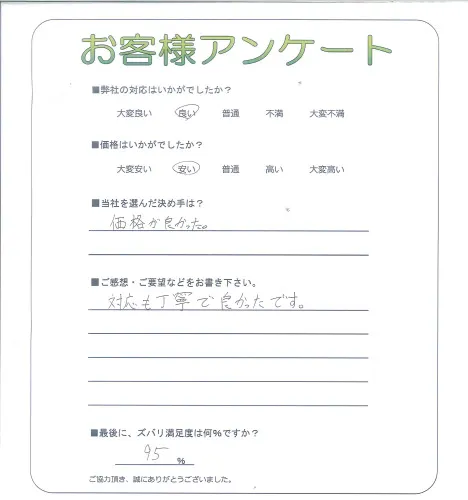 お客様アンケート
■弊社の対応はいかがでしたか？
大変良い 良い 普通 不満 大変不満
■価格はいかがでしたか？
大変安い 安い 普通 高い 大変高い
■当社を選んだ決め手は？
価格が良かった。
■ご感想・ご要望などをお書き下さい。
対応も丁寧で良かったです。
■最後に、ズバリ満足度は何%ですか？
95 %
ご協力頂き、誠にありがとうございました。